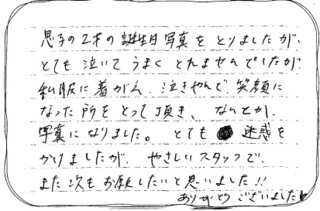 息子の2才の誕生日写真をとりましたが、
とても泣いてうまくとれませんでしたが
私服に着がえ、泣きやんで、笑顔に
なった所をとって頂き、なんとか、
写真になりました。とても 迷惑を
かけましたが、やさしいスタッフで、
また次もお願したいと思いました!!
ありがとうございました